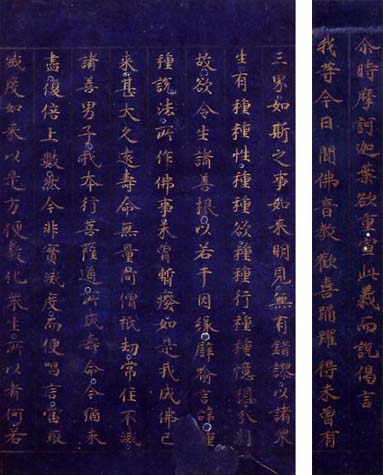 尒時摩訶迦葉欲重宣此義而說偈言
我等今日聞佛音教歡喜踊躍得未曾有
三界如斯之事如來明見無有錯謬以諸衆
生有種種性種種欲種種行種種憶想分別
故欲令生諸善根以若干因緣辟喻言辭種
種說法所作佛事未曾暫癈如是我成佛已
來甚大久遠壽命無量阿僧祇劫常住不滅
諸善男子我本行菩薩道所成壽命今猶未
盡復倍上數然今非實滅度而便唱言當取
滅度如來以是方便教化衆生所以者何若